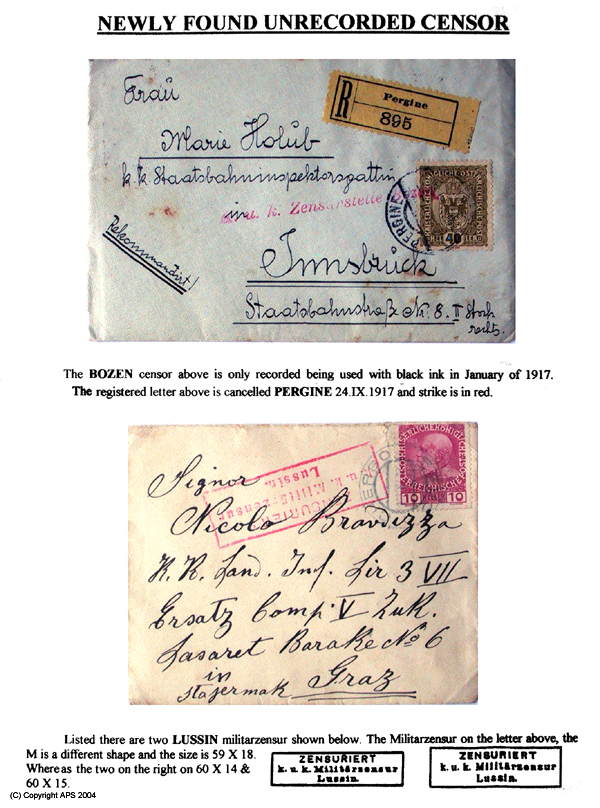 NEWLY FOUND UNRECORDED CENSOR
R
Pergine
895
Fraŭ
Marie Holŭb
k.k. Staatsbahninspektorsgattin
in
k. u. k. Zensurstelle Bozen
PERGINE
40
Rekommandirt!
Innsbrŭck
Staatsbahnstraße No. 8. II Stock
rechts.
The BOZEN censor above is only recorded being used with black ink in January of 1917.
The registered letter above is cancelled PERGINE 24.IX.1917 and strike is in red.
ZENSURIERT
k. u. k. Militärzensur
Lussin.
10 10
Signor
Nicolo Bravdizza
K. K. Land. Inf. Lir 3 VII
Ersatz Comp. V Zuk.
Lasaret Barake No 6
in
Stajermak Graz
Listed there are two LUSSIN militarzensur shown below. The Militarzensur on the letter above, the
M is a different shape and the size is 59 X 18.
Whereas the two on the right on 60 X 14 &
60 X 15.
ZENSURIERT
k. u. k. Militärzensur
Lussin.
ZENSURIERT
k. u. k. Militärzensur
Lussin.
(C) Copyright APS 2004